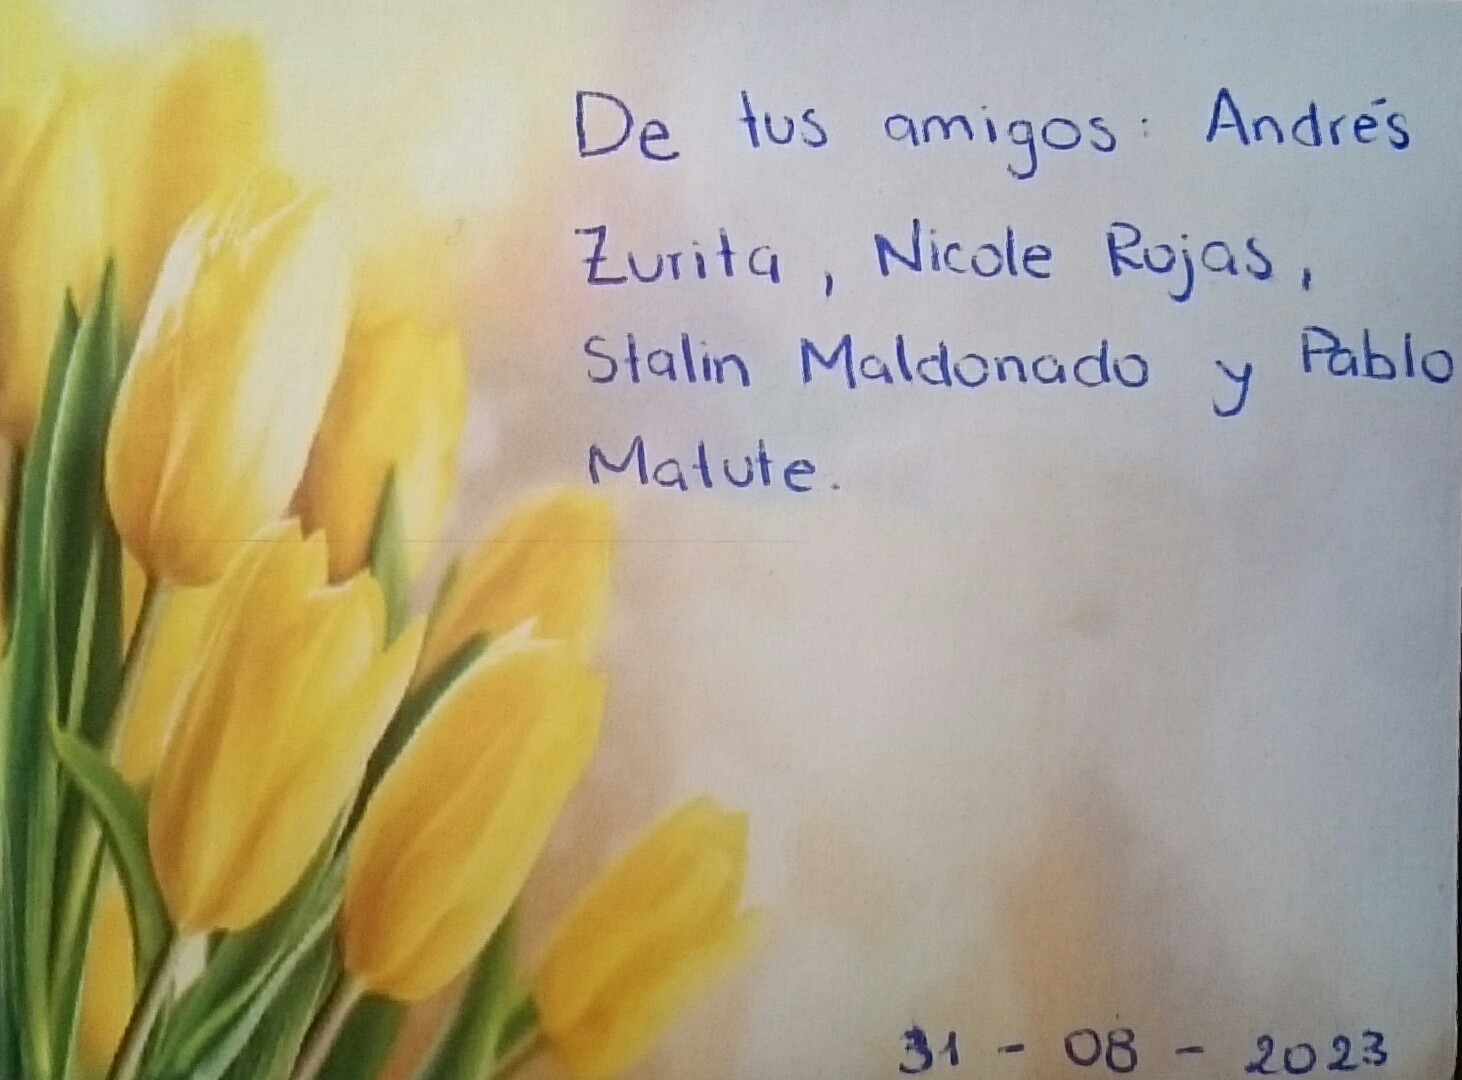 De tus amigos: Andrés
Zurita, Nicole Rojas,
Stalin Maldonado y Pablo
Matute.
31 - 08 - 2023